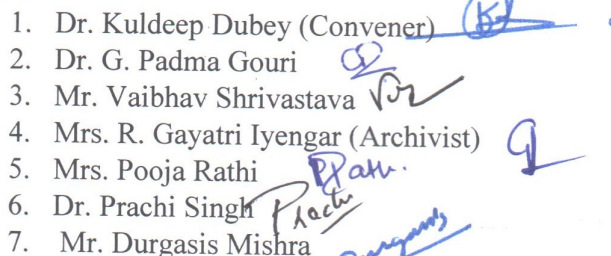 1. Dr. Kuldeep Dubey (Convener)
2. Dr. G. Padma Gouri
3. Mr. Vaibhav Shrivastava
4. Mrs. R. Gayatri Iyengar (Archivist)
5. Mrs. Pooja Rathi
6. Dr. Prachi Singh Prachi
7. Mr. Durgasis Mishra